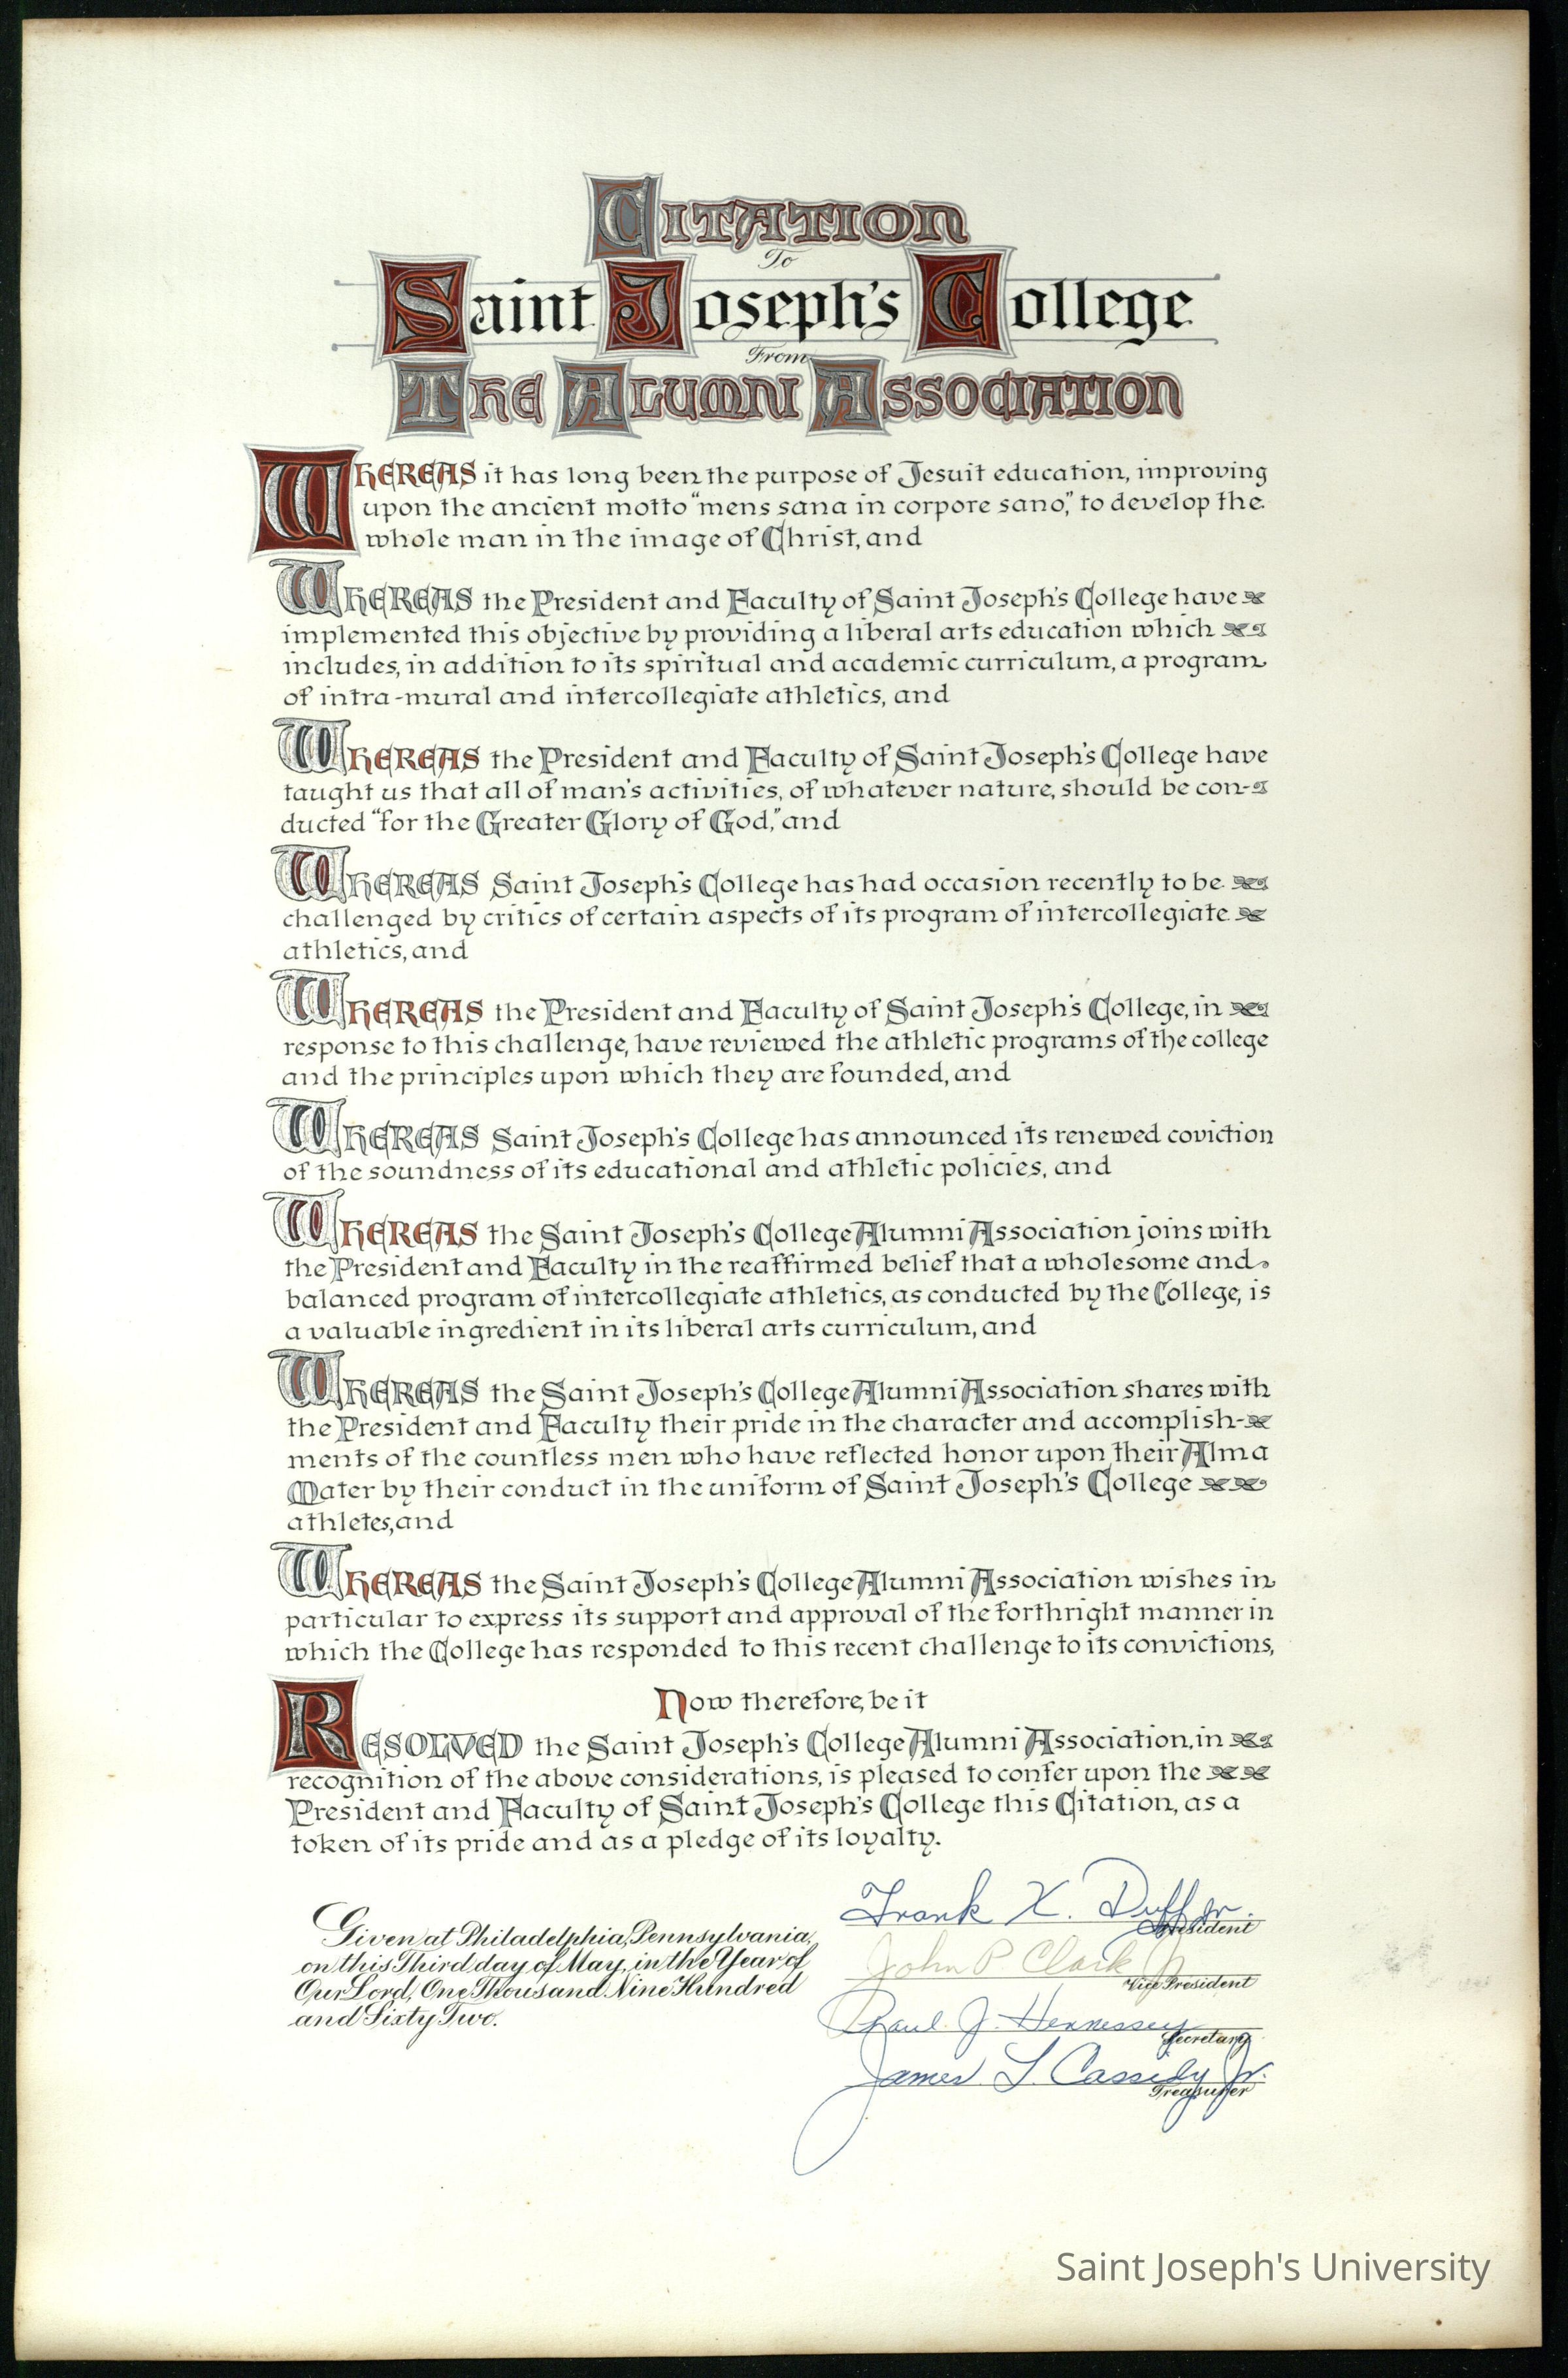 Citation
To
Saint Joseph's College
From
The Alumni Association
Whereas it has long been the purpose of Jesuit education, improving
upon the ancient motto "mens sana in corpore sano," to develop the
whole man in the image of Christ, and
Whereas the President and Faculty of Saint Joseph's College have
implemented this objective by providing a liberal arts education which
includes, in addition to its spiritual and academic curriculum, a program
of intra-mural and intercollegiate athletics, and
Whereas the President and Faculty of Saint Joseph's College have
taught us that all of man's activities, of whatever nature, should be con-
ducted "for the Greater Glory of God," and
Whereas Saint Joseph's College has had occasion recently to be
challenged by critics of certain aspects of its program of intercollegiate
athletics, and
Whereas the President and Faculty of Saint Joseph's College, in
response to this challenge, have reviewed the athletic programs of the college
and the principles upon which they are founded, and
Whereas Saint Joseph's College has announced its renewed coviction
of the soundness of its educational and athletic policies, and
Whereas the Saint Joseph's College Alumni Association joins with
the President and Faculty in the reaffirmed belief that a wholesome and
balanced program of intercollegiate athletics, as conducted by the College, is
a valuable ingredient in its liberal arts curriculum, and
Whereas the Saint Joseph's College Alumni Association shares with
the President and Faculty their pride in the character and accomplish-
ments of the countless men who have reflected honor upon their Alma
Mater by their conduct in the uniform of Saint Joseph's College
athletes, and
Whereas the Saint Joseph's College Alumni Association wishes in
particular to express its support and approval of the forthright manner in
which the College has responded to this recent challenge to its convictions,
Now therefore, be it
Resolved the Saint Joseph's College Alumni Association, in
recognition of the above considerations, is pleased to confer upon the
President and Faculty of Saint Joseph's College this Citation, as a
token of its pride and as a pledge of its loyalty.
Given at Philadelphia, Pennsylvania,
on this Third day of May, in the Year of
Our Lord, One Thousand Nine Hundred
and Sixty Two.
Frank X. Duff Jr.
President
John P Clark Jr
Vice President
Paul J. Hennessey
Secretary
James L. Cassidy Jr.
Treasurer
Saint Joseph's University